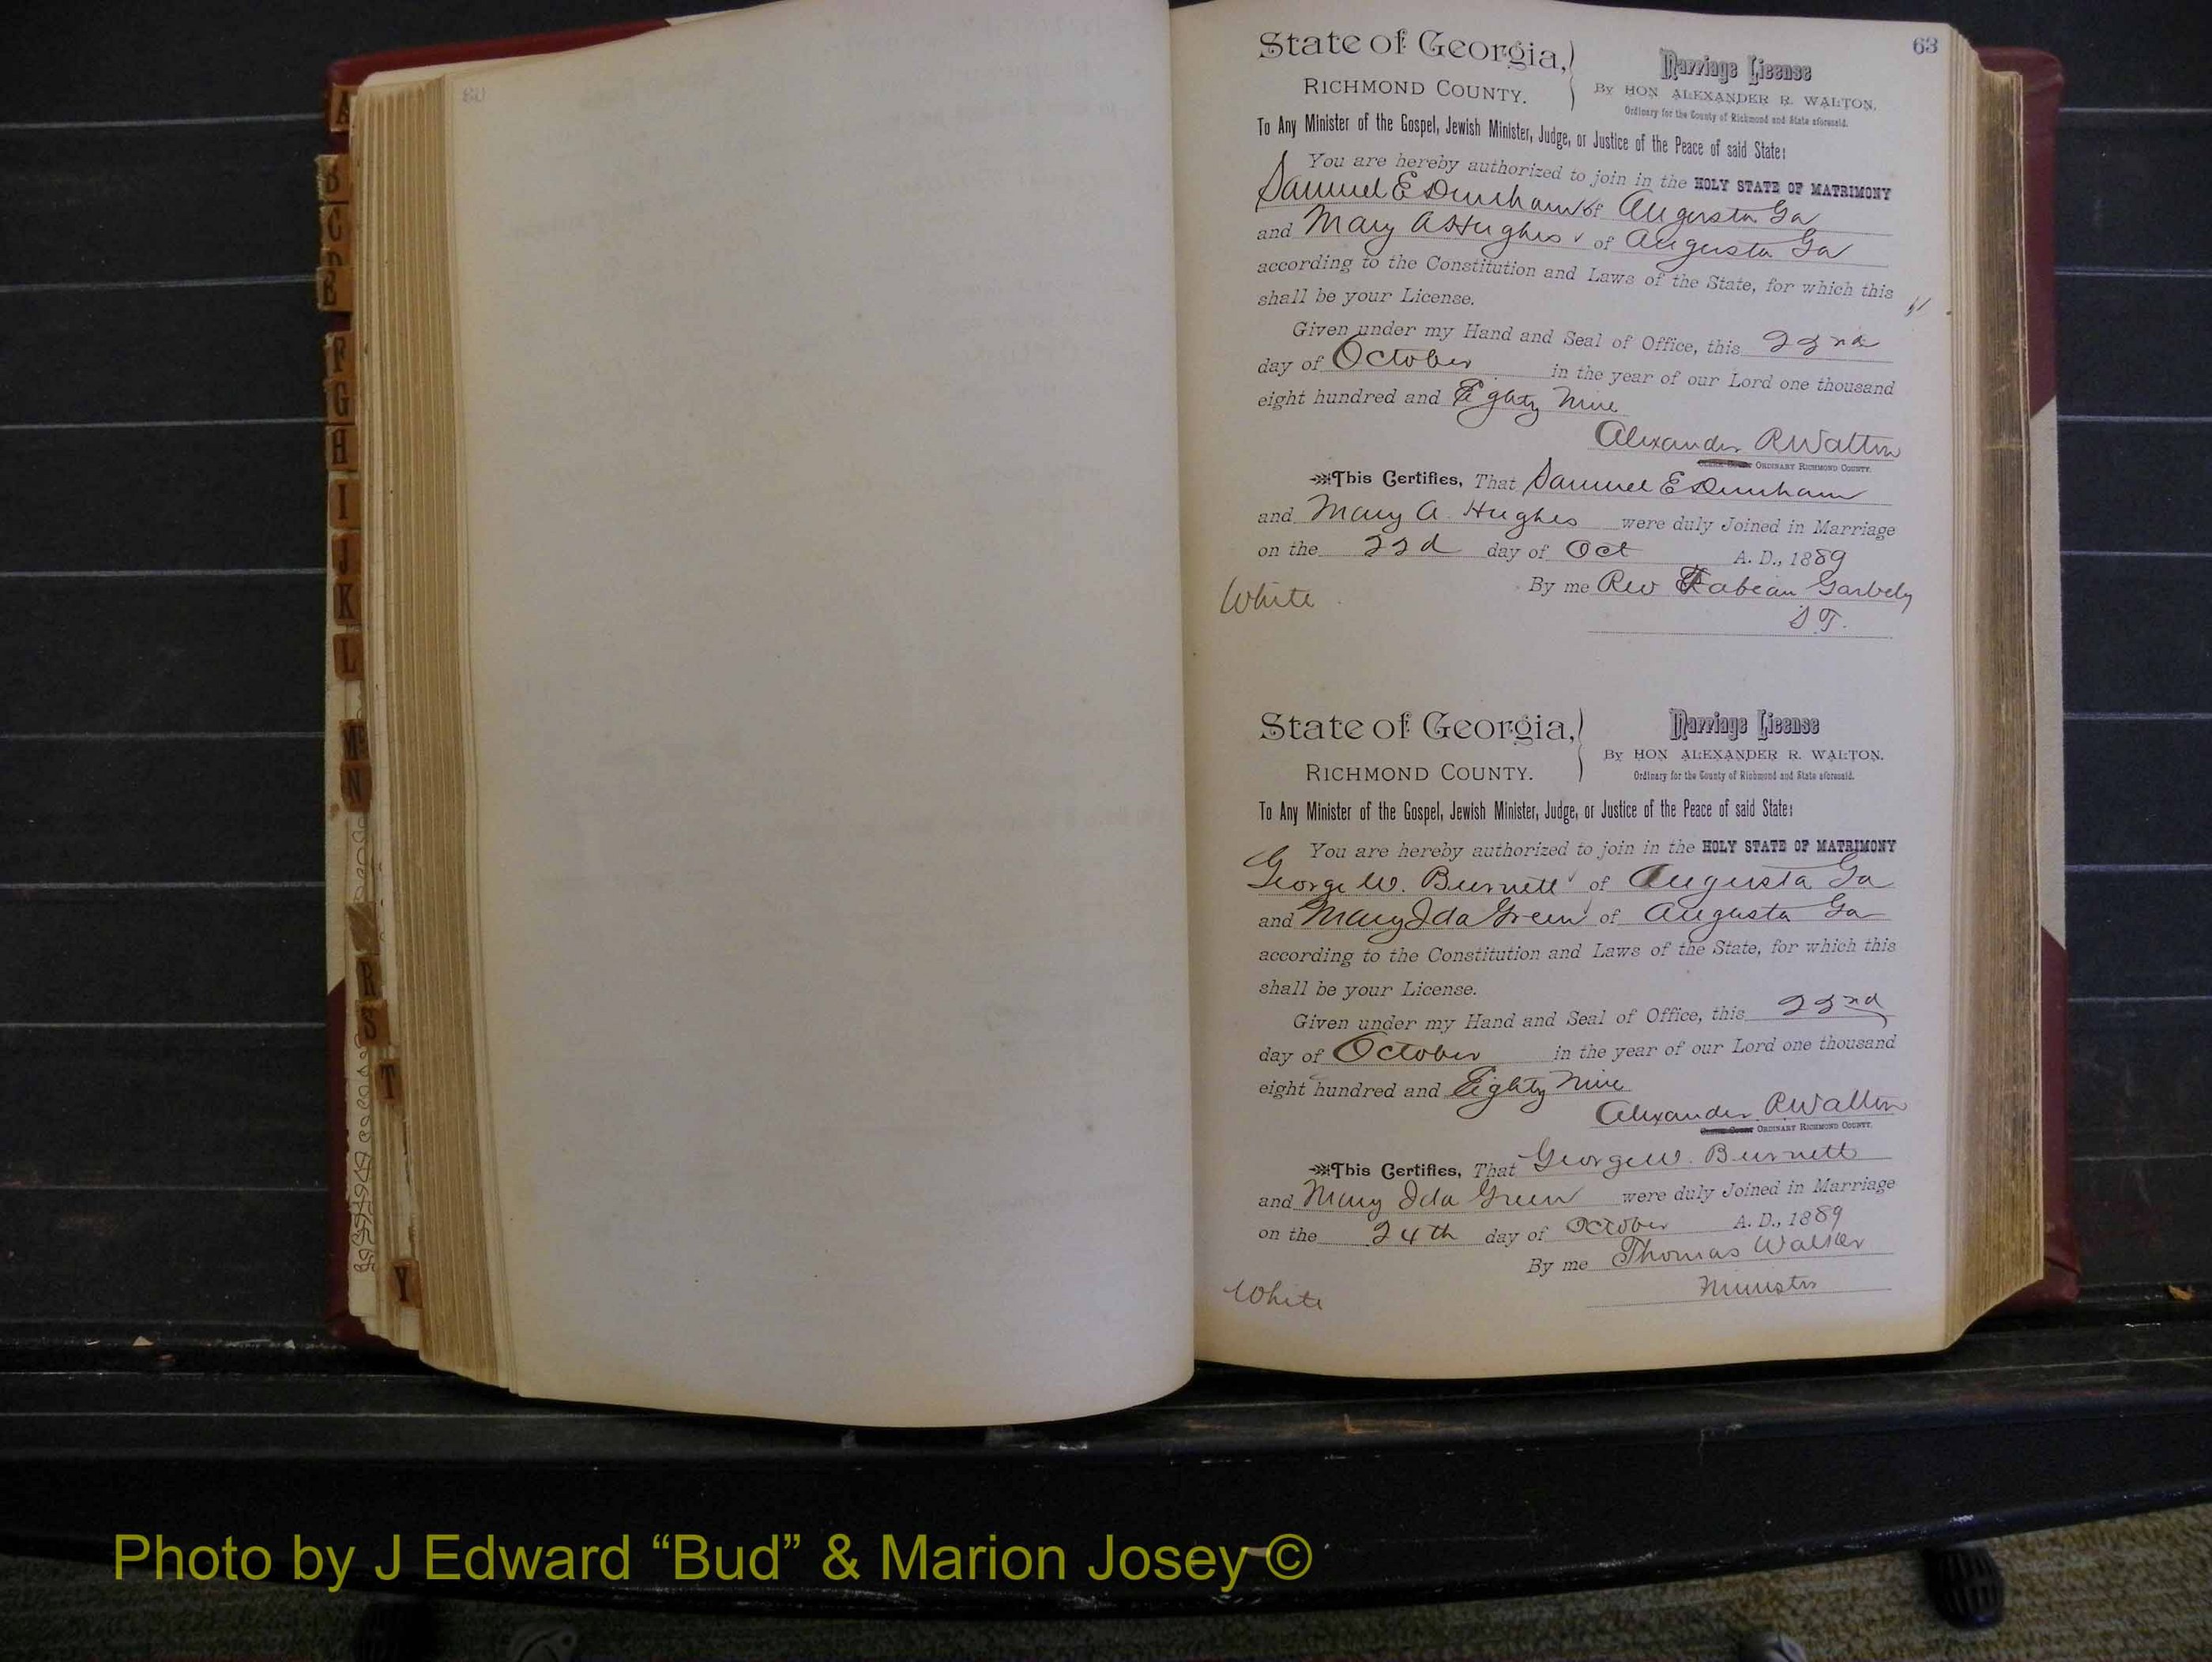 A
B
C
D
E
F
G
H
I
J
K
L
Mc
N
R
S
T
Y
63
State of Georgia,
RICHMOND COUNTY.
Marriage License
By HON ALEXANDER R. WALTON,
Ordinary for the County of Richmond and State aforesaid.
To Any Minister of the Gospel, Jewish Minister, Judge, or Justice of the Peace of said State:
You are hereby authorized to join in the HOLY STATE OF MATRIMONY
Samuel E Dunham of Augusta Ga
and Mary A Hughes of Augusta Ga
according to the Constitution and Laws of the State, for which this
shall be your License.
Given under my Hand and Seal of Office, this 22nd
day of October in the year of our Lord one thousand
eight hundred and Eighty Nine
Alexander R Walton
ORDINARY RICHMOND COUNTY.
This Certifies, That Samuel E Dunham
and Mary A. Hughes were duly Joined in Marriage
on the 22d day of Oct A. D., 1889
By me Rev Fabean
White
State of Georgia,
RICHMOND COUNTY.
Marriage License
By HON ALEXANDER R. WALTON.
Ordinary for the County of Richmond and State aforesaid.
To Any Minister of the Gospel, Jewish Minister, Judge, or Justice of the Peace of said State:
You are hereby authorized to join in the HOLY STATE OF MATRIMONY
George W. Burnett of Augusta Ga
and Mary Ida Green of Augusta Ga
according to the Constitution and Laws of the State, for which this
shall be your License.
Given under my Hand and Seal of Office, this 22nd
day of October in the year of our Lord one thousand
eight hundred and Eighty Nine
Alexander R Walton
ORDINARY RICHMOND COUNTY.
This Certifies, That George W. Burnett
and Mary Ida Green were duly Joined in Marriage
on the 24th day of October A. D., 1889
By me Thomas Walker
Minister
White
Photo by J Edward “Bud” & Marion Josey ©